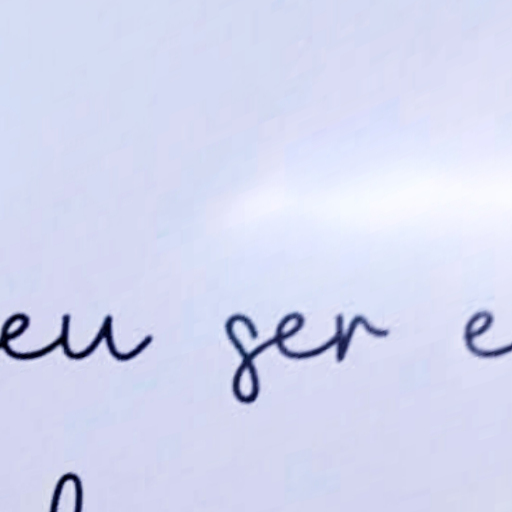 eu ser e